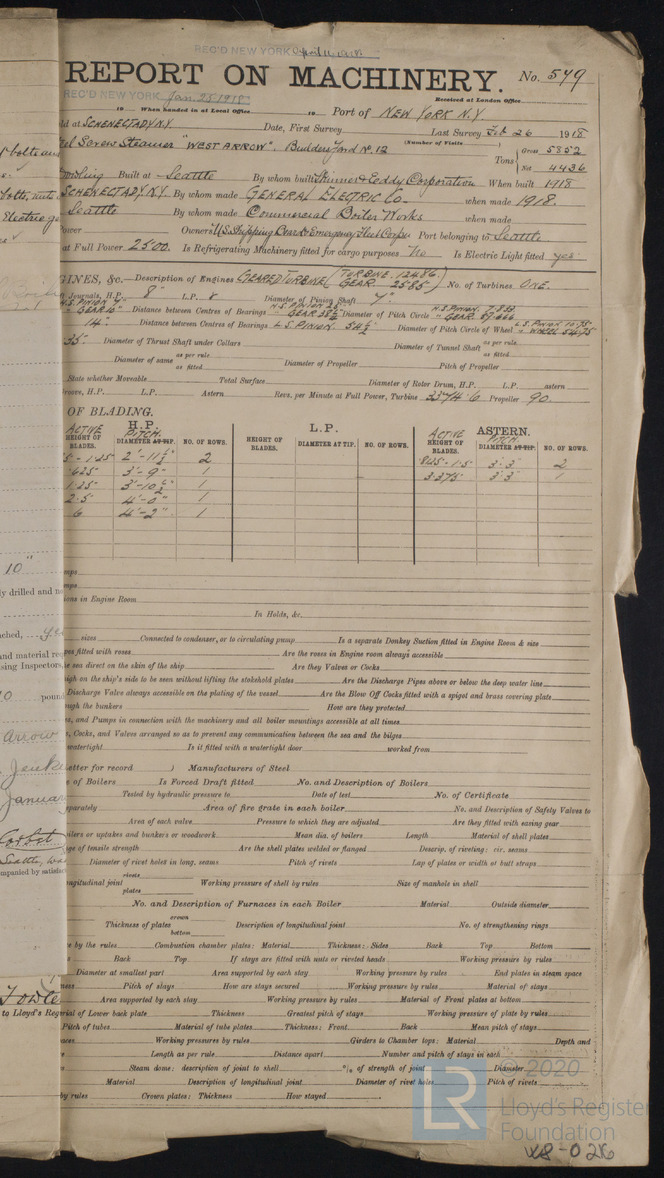 REC'D NEW YORK April 11 1918
REPORT ON MACHINERY. No. 579
REC'D NEW YORK Jan 25 1918
Received at London Office
19 When handed in at Local Office 19 Port of NEW YORK N.Y.
ld at SCHENECTADY N.Y. Date, First Survey Last Survey Feb 26 1918
(Number of Visits )
el Screw Steamer "WEST ARROW". Builders Yard No. 12
Tons Gross 5852
Net 4436
Built at Seattle By whom built Skinner & Eddy Corporation When built 1918
SCHENECTADY N.Y. By whom made GENERAL ELECTRIC Co. when made 1918.
Seattle By whom made Commercial Boiler Works when made
Power Owners U.S. Shipping Board Emergency Fleet Corpn Port belonging to Seattle
at Full Power 2500 Is Refrigerating Machinery fitted for cargo purposes No Is Electric Light fitted yes
GINES, &c.—Description of Engines GEARED TURBINE (TURBINE 12486 GEAR 2585) No. of Turbines ONE.
Journals, H.P. 8" L.P. 8 Diameter of Pinion Shaft 7"
Distance between Centres of Bearings H.S. PINION 28 GEAR 38½ Diameter of Pitch Circle H.S. PINION 7.853
14" Distance between Centres of Bearings L.S. PINION. 54½ Diameter of Pitch Circle of Wheel
35" Diameter of Thrust Shaft under Collars Diameter of Tunnel Shaft as per rule
as fitted
Diameter of same as per rule Diameter of Propeller Pitch of Propeller
as fitted
State whether Moveable Total Surface Diameter of Rotor Drum, H.P. L.P. astern
roove, H.P. L.P. Astern Revs. per Minute at Full Power, Turbine Propeller 90.
OF BLADING.
H.P. L.P. ASTERN.
ACTIVE HEIGHT OF BLADES. PITCH DIAMETER AT TIP. NO. OF ROWS. HEIGHT OF BLADES. DIAMETER AT TIP. NO. OF ROWS. ACTIVE HEIGHT OF BLADES. PITCH DIAMETER AT TIP. NO. OF ROWS.
5 - 1.25 2'-11½" 2 .845 - 1.5 3'-3" 2
.625 3'-9" 1 3.375 3'3" 1
1.25 3'-10½" 1
2.5 4'-0" 1
6 4'-2" 1
mps
mps
ions in Engine Room
In Holds, &c.
sizes Connected to condenser, or to circulating pump Is a separate Donkey Suction fitted in Engine Room & size
pes fitted with roses Are the roses in Engine room always accessible
e sea direct on the skin of the ship Are they Valves or Cocks
igh on the ship's side to be seen without lifting the stokehold plates Are the Discharge Pipes above or below the deep water line
Discharge Valve always accessible on the plating of the vessel Are the Blow Off Cocks fitted with a spigot and brass covering plate
ugh the bunkers How are they protected
s, and Pumps in connection with the machinery and all boiler mountings accessible at all times
, Cocks, and Valves arranged so as to prevent any communication between the sea and the bilges
watertight Is it fitted with a watertight door worked from
etter for record ) Manufacturers of Steel
e of Boilers Is Forced Draft fitted No. and Description of Boilers
Tested by hydraulic pressure to Date of test No. of Certificate
eparately Area of fire grate in each boiler No. and Description of Safety Valves to
Area of each valve Pressure to which they are adjusted Are they fitted with easing gear
ilers or uptakes and bunkers or woodwork Mean dia. of boilers Length Material of shell plates
ge of tensile strength Are the shell plates welded or flanged Descrip. of riveting: cir. seams
Diameter of rivet holes in long. seams Pitch of rivets Lap of plates or width of butt straps
ngitudinal joint rivets Working pressure of shell by rules Size of manhole in shell
plates
No. and Description of Furnaces in each Boiler Material Outside diameter
Thickness of plates crown Description of longitudinal joint No. of strengthening rings
bottom
e by the rules Combustion chamber plates: Material Thickness: Sides Back Top Bottom
Back Top If stays are fitted with nuts or riveted heads Working pressure by rules
Diameter at smallest part Area supported by each stay Working pressure by rules End plates in steam space
ness Pitch of stays How are stays secured Working pressure by rules Material of stays
Area supported by each stay Working pressure by rules Material of Front plates at bottom
rial of Lower back plate Thickness Greatest pitch of stays Working pressure of plate by rules
Pitch of tubes Material of tube plates Thickness: Front Back Mean pitch of stays
aces Working pressures by rules Girders to Chamber tops: Material Depth and
Length as per rule Distance apart Number and pitch of stays in each
Steam dome: description of joint to shell % of strength of joint Diameter
Material Description of longitudinal joint Diameter of rivet holes Pitch of rivets
by rules Crown plates: Thickness How stayed
10"
ly drilled and n
ched, yes
and material re
sing Inspectors,
0 poun
Arrow
Jenk
January
Corbet
Seattle, Wa
mpanied by satisfac
Towle
to Lloyd's Reg
LR
© 2020
Lloyd's Register
Foundation
W8-026